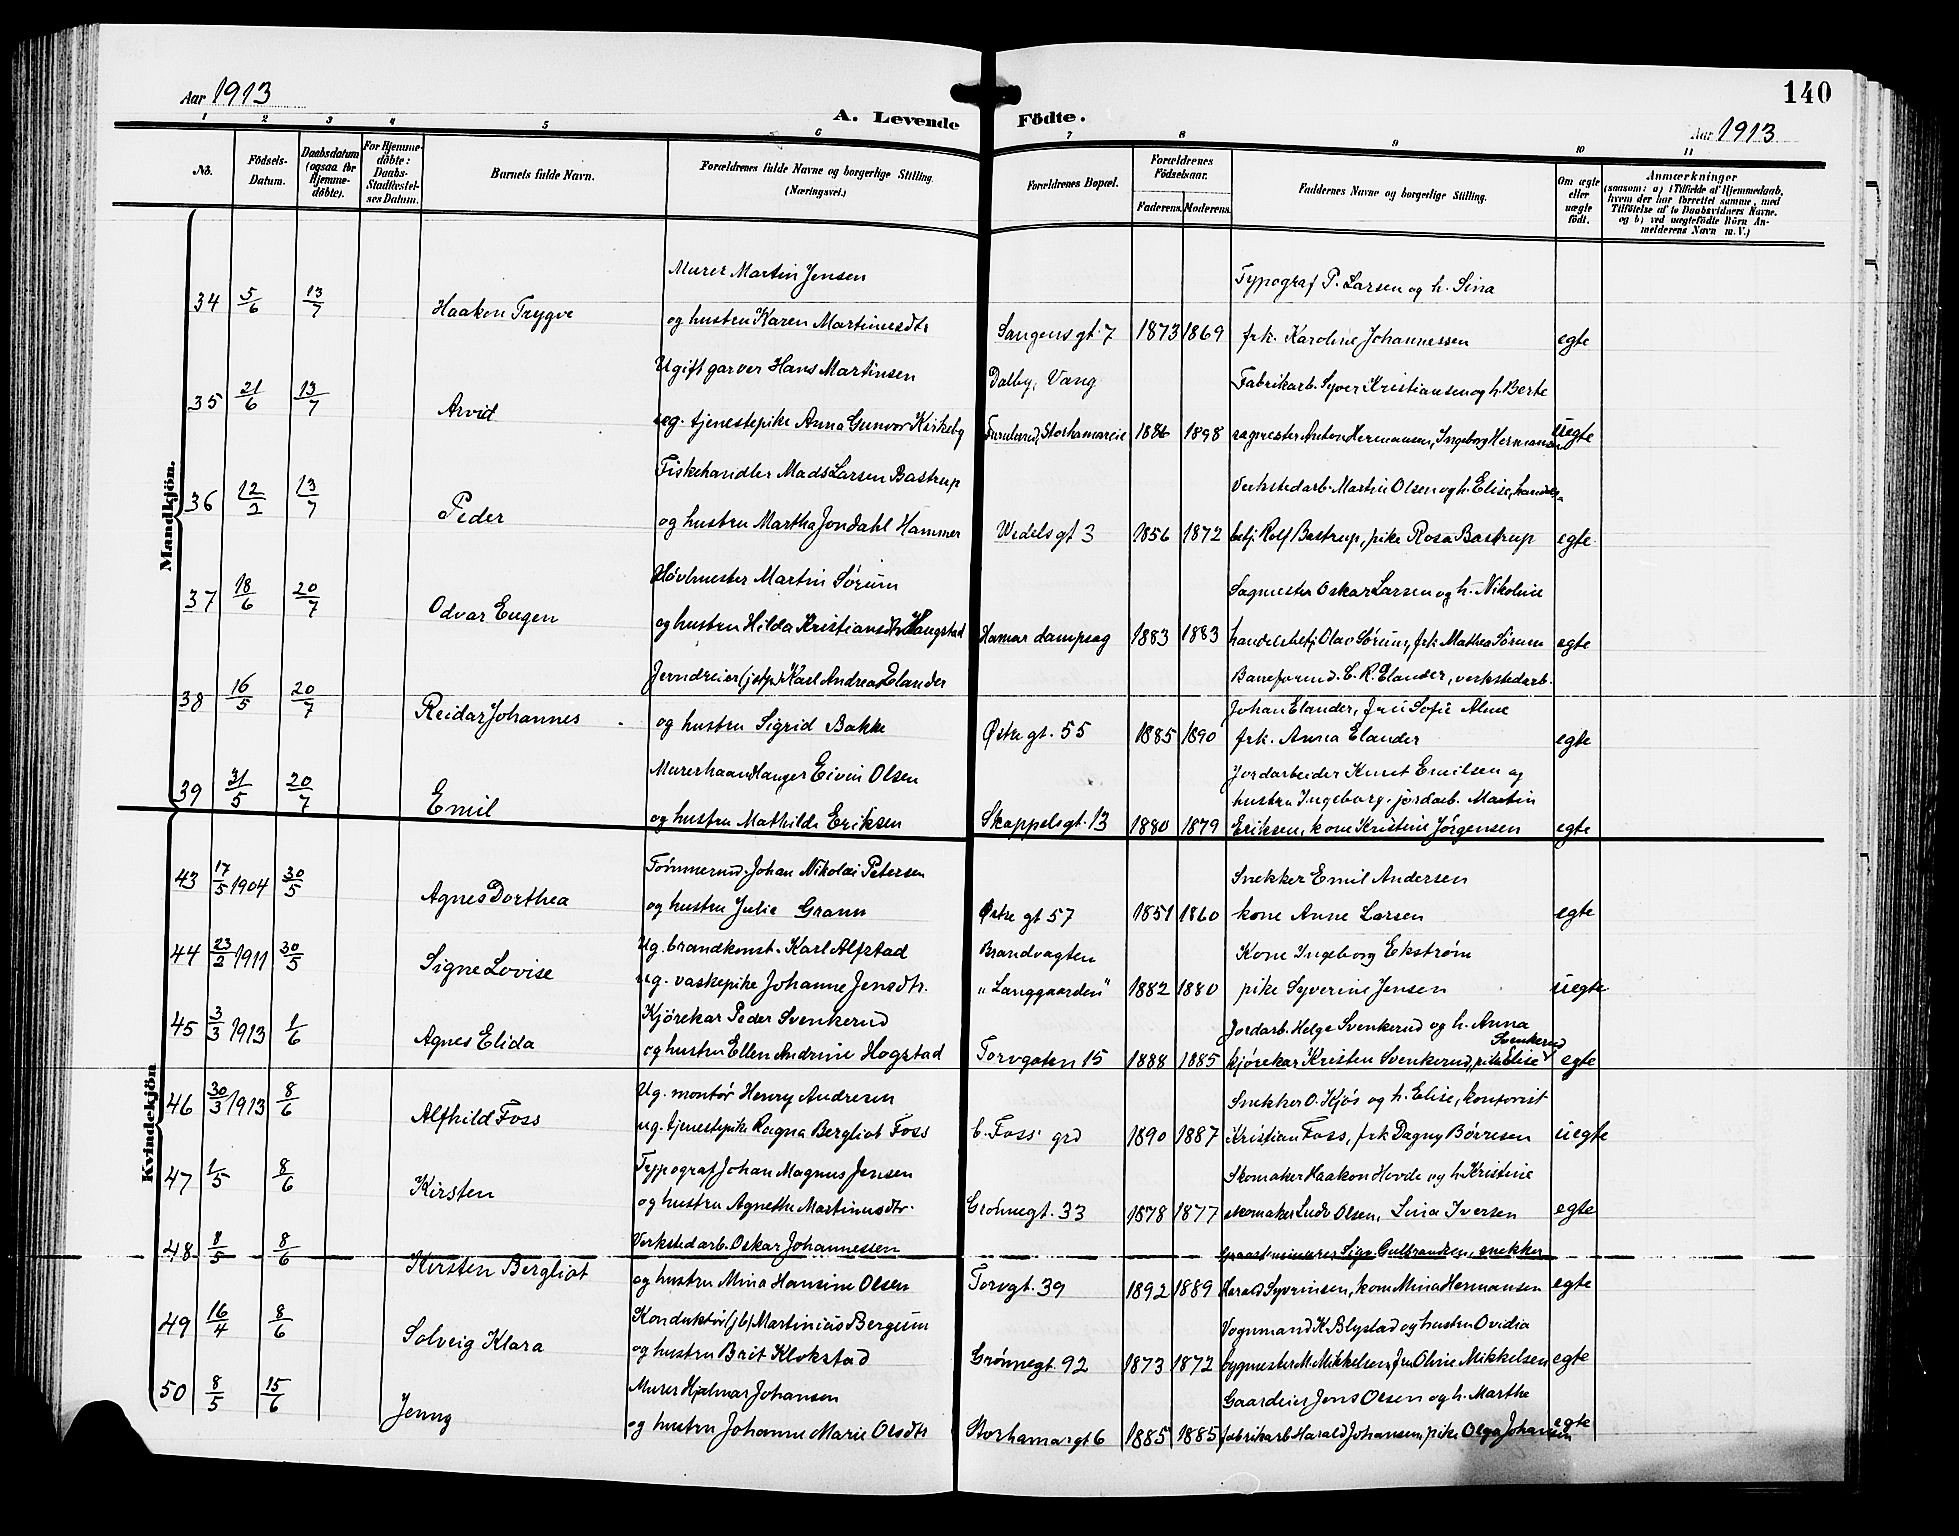 Aar 1913
A. Levende Födte.
140
Aar 1913
1 2 3 4 5 6 7 8 9 10 11
No.
Födsels-Datum.
Daabsdatum (ogsaa for Hjemmedöbte).
For Hjemmedöbte: Daabs-Stadfæstelses Datum.
Barnets fulde Navn.
Forældrenes fulde Navne og borgerlige Stilling. (Næringsvei.)
Forældrenes Bopæl.
Forældrenes Födselsaar.
Faderens. Moderens.
Faddernes Navne og borgerlige Stilling.
Om ægte eller uægte födt.
Anmærkninger
(saasom: a) i Tilfælde af Hjemmedaab, hvem der har forrettet samme, med Tilföielse af to Daabsvidners Navne. og b) ved uægtefödte Börn Anmelderens Navn m. V.)
Mandkjön.
Murer Martin Jensen
Typograf P. Larsen og h. Sina
34 5/6 13/7 Haakon Trygve og hustru Karen Martinusdtr Sangensgt. 7 1873 1869 frk. Karoline Johannessen egte
Ugift garver Hans Martinsen Dalby, Vang Fabrikarb. Syver Kristiansen og h. Berte
35 21/6 13/7 Arvid ug. tjenestepike Anna Gunvor Kirkeby Furulund, Storhamareie 1886 1898 sagmester Anton Hermansen, Ingeborg Hermansen uegte
Fiskehandler Mads Larsen Bastrup Verkstedarb. Martin Olsen og h. Elise, handels-
36 12/2 13/7 Peder og hustru Martha Jondahl Hammer Wedelsgt 3 1856 1872 betj. Rolf Bastrup, pike Rosa Bastrup egte
Høvlmester Martin Sørum Sagmester Oskar Larsen og h. Nikoline
37 18/6 20/7 Odvar Eugen og hustru Hilda Kristiansdtr Haugstad Hamar dampsag 1883 1883 handelsbetj. Olav Sørum, frk Mathea Sørum egte
Jerndreier (jstp.) Karl Andreas Elander Baneformd. E. R. Elander, verkstedarb.
38 16/5 20/7 Reidar Johannes og hustru Sigrid Bakke Østre gt. 55 1885 1890 Johan Elander, fru Sofie Alme
frk. Anna Elander egte
Murerhaandlanger Eivin Olsen Jordarbeider Knut Emilsen og
39 31/5 20/7 Emil og hustru Mathilde Eriksen Skappelsgt. 13 1880 1879 hustru Ingeborg, jordarb. Martin
Eriksen, kone Kristine Jørgensen egte
Kvindekjön
Tømmermd. Johan Nikolai Petersen Snekker Emil Andersen
43 17/5 1904 30/5 Agnes Dorthea og hustru Julie Grann Østre gt 57 1851 1860 kone Anne Larsen egte
Ug. brandkonst. Karl Alfstad Brandvagten Kone Ingeborg Ekstrøm
44 23/2 1911 30/5 Signe Lovise ug. vaskepike Johanne Jensdtr. "Langgaarden" 1882 1880 pike Syverine Jensen uegte
Kjørekar Peder Svenkerud Jordarb. Helge Svenkerud og h. Anna
45 3/3 1913 1/6 Agnes Elida og hustru Ellen Andrine Hogstad Torvgaten 15 1888 1885 kjørekar Kristen Svenkerud, pike Elise Svenkerud egte
Ug. montør Henry Andresen Snekker O. Kjøs og h. Elise, kontorist
46 30/3 1913 8/6 Alfhild Foss ug. tjenestepike Ragna Bergliot Foss C. Foss' grd 1890 1887 Kristian Foss, frk Dagny Børresen uegte
Typograf Johan Magnus Jensen Skomaker Haakon Hovde og h. Kristine
47 1/5 8/6 Kirsten og hustru Agnethe Martinusdtr. Grønnegt. 33 1878 1877 skomaker Ludv Olsen, Lina Iversen egte
Verkstedarb. Oskar Johannessen Sigv. Gulbrandsen, snekker
48 8/5 8/6 Kirsten Bergliot og hustru Mina Hansine Olsen Torvgt. 39 1892 1889 Harald Syverinsen, kone Mina Hermansen egte
Konduktør (jb) Martinius Bergum Vognmand K. Blystad og hustru Ovidia
49 16/4 8/6 Solveig Klara og hustru Brit Klokstad Grønnegt. 92 1873 1872 bygmester M. Mikkelsen, fru Oline Mikkelsen egte
Murer Hjalmar Johansen Gaardeier Jens Olsen og h. Marthe
50 8/5 15/6 Jenny og hustru Johanne Marie Olsdtr Storhamargt 6 1885 1885 fabrikarb Harald Johansen, pike Olga Johansen egte